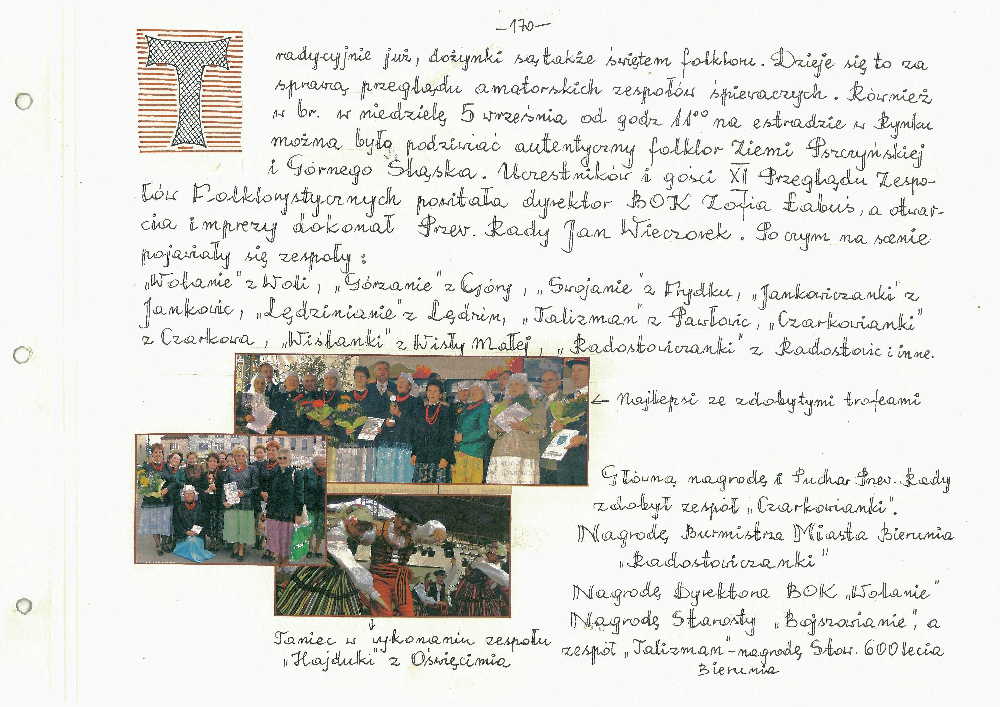 -170-
Tradycyjnie już, dożynki są także świętem folkloru. Dzieje się to za
sprawą przeglądu amatorskich zespołów śpiewaczych. Również
w br. w niedzielę 5 września od godz 11⁰⁰ na estradzie w Rynku
można było podziwiać autentyczny folklor Ziemi Pszczyńskiej
i Górnego Śląska. Uczestników i gości XI Przeglądu Zespo-
łów Folklorystycznych powitała dyrektor BOK Zofia Łabuś, a otwar-
cia imprezy dokonał Przew. Rady Jan Wieczorek. Po czym na scenie
pojawiały się zespoły:
„Wolanie" z Woli, „Górzanie" z Góry, „Swojanie" z Frydku, „Jankowiczanki" z
Jankowic, „Lędzinianie" z Lędzin, „Talizman" z Pawłowic, „Czarkowianki"
z Czarkowa, „Wiślanki" z Wisły Małej, „Radostowiczanki" z Radostowic i inne.
← Najlepsi ze zdobytymi trofeami
Główną nagrodę i Puchar Przew. Rady
zdobył zespół „Czarkowianki".
Nagrodę Burmistrza Miasta Bierunia
„Radostowiczanki"
Nagrodę Dyrektora BOK „Wolanie"
Nagrodę Starosty „Bojszowianie", a
zespół „Talizman" - nagrodę Stow. 600lecia
Bierunia
↓
Taniec w wykonaniu zespołu
„Hajduki" z Oświęcimia